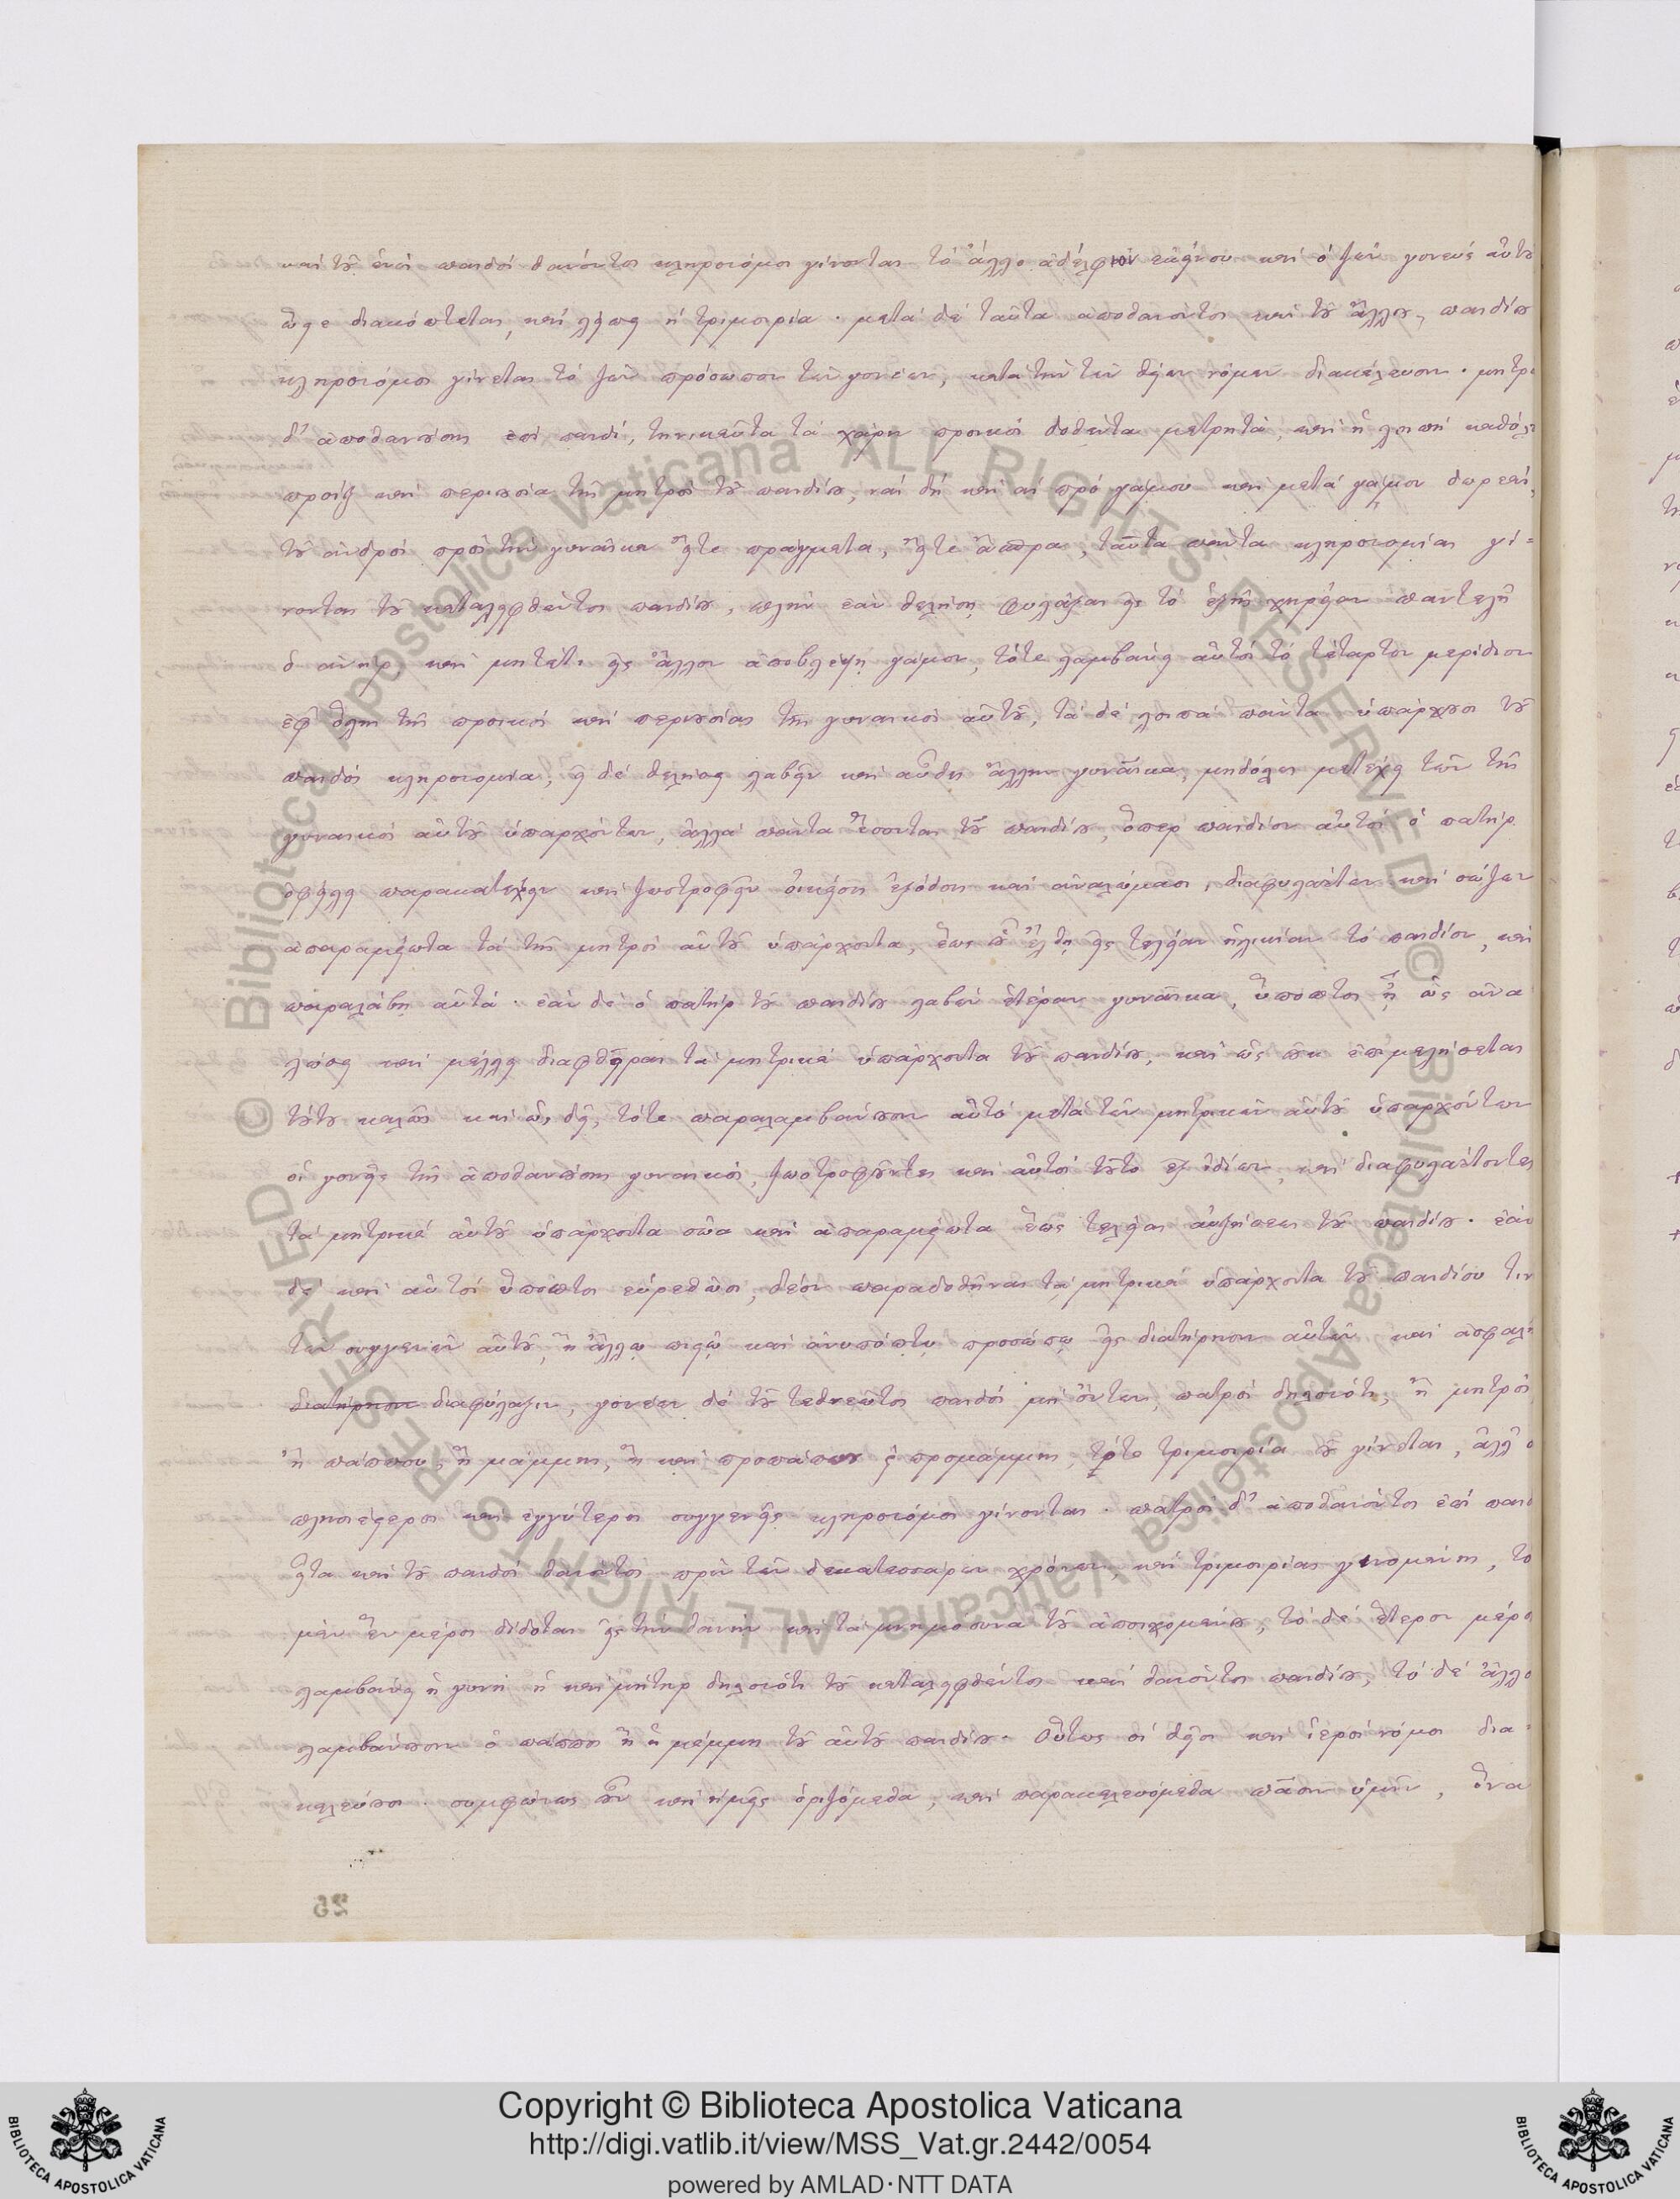 καὶ τοῦ ἑνὸς παιδὸς θανόντος κληρονόμοι γίνονται τὸ ἄλλο ἀδελφιὸν ἐκείνου καὶ ὁ ζῶν γονεὺς αὐτοῦ
ὧδε διακόπτεται, καὶ λείπει ἡ τριμοιρία · μετὰ δὲ ταῦτα ἀποθανόντος καὶ τοῦ ἄλλου, παιδίου
κληρονόμος γίνεται τὸ ζῶν πρόσωπον τῶν γονέων, κατὰ τὴν τῶν θείων νόμων διακέλευσιν · μητρὸ
δ' ἀποθανούσης ἐπὶ παιδί, τηνικαῦτα τὰ χάριν προικὸς δοθέντα μετρητὰ, καὶ ἡ λοιπὴ καθόλ
προὶξ καὶ περιουσία τῆς μητρὸς τοῦ παιδίου, ναὶ δὴ καὶ αἱ πρὸ γάμου καὶ μετὰ γάμον δωρεαὶ,
τοῦ ἀνδρὸς πρὸς τὴν γυναῖκα εἴτε πράγματα, εἴτε ἄσπρα, ταῦτα πάντα κληρονομίαι γί-
νονται τοῦ καταλειφθέντος παιδίου, πλὴν ἐὰν θελήσῃ φυλάξαι εἰς τὸ ἑξῆς χηρείαν παντελῆ
ὁ ἀνὴρ καὶ μηκέτι εἰς ἄλλον ἀποβλέψῃ γάμον, τότε λαμβάνει αὐτὸς τὸ τέταρτον μερίδιον
ἐφ' ὅλης τῆς προικὸς καὶ περιουσίας τῆς γυναικὸς αὐτοῦ, τὰ δὲ λοιπὰ πάντα ὑπάρχουσι τοῦ
παιδὸς κληρονομία, εἰ δὲ θελήσει λαβεῖν καὶ αὖθις ἄλλην γυναῖκα, μηδόλως μετέχει τῶν τῆς
γυναικὸς αὐτοῦ ὑπαρχόντων, ἀλλὰ πάντα ἔσονται τοῦ παιδίου, ὅπερ παιδίον αὐτὸς ὁ πατὴρ
ὀφείλει παρακατέχειν καὶ ζωοτροφεῖν οἰκείοις ἐξόδοις καὶ ἀναλώμασι, διαφυλάττων καὶ σώζων
ἀπαραμείωτα τὰ τῆς μητρὸς αὐτοῦ ὑπάρχοντα, ἕως οὗ ἔλθῃ εἰς τελείαν ἡλικίαν τὸ παιδίον, καὶ
παραλάβῃ αὐτά · ἐὰν δὲ ὁ πατὴρ τοῦ παιδίου λαβὼν ἑτέραν γυναῖκα, ὕποπτος ᾖ ὡς ἀνα
λώσει καὶ μέλλει διαφθεῖραι τὰ μητρικὰ ὑπάρχοντα τοῦ παιδίου, καὶ ὡς οὐκ ἐπιμελήσεται
τούτου καλῶς καὶ ὡς δεῖ, τότε παραλαμβάνουσιν αὐτὸ μετὰ τῶν μητρικῶν αὐτοῦ ὑπαρχόντων
οἱ γονεῖς τῆς ἀποθανούσης γυναικός, ζωοτροφοῦντες καὶ αὐτοὶ τοῦτο ἐξ ἰδίων, καὶ διαφυλάττοντες
τὰ μητρικὰ αὐτοῦ ὑπάρχοντα σῶα καὶ ἀπαραμείωτα ἕως τελείας αὐξήσεως τοῦ παιδίου · ἐὰν
δὲ καὶ αὐτοὶ ὕποπτοι εὑρεθῶσι, δέον παραδοθῆναι τὰ μητρικὰ ὑπάρχοντα τοῦ παιδίου τιν
τῶν συγγενῶν αὐτοῦ, ἢ ἄλλῳ πιστῷ καὶ ἀνυπόπτῳ προσώπῳ εἰς διατήρησιν αὐτῶν καὶ ἀσφαλῆ
διατήρησιν διαφύλαξιν, γονέων δὲ τοῦ τεθνεῶτος παιδὸς μὴ ὄντων, πατρὸς δηλονότι, ἢ μητρὸς
ἢ πάππου, ἢ μάμμης, ἢ καὶ προπάππου ἢ προμάμμης, τότε τριμοιρία οὐ γίνεται, ἀλλ' ο
πλησιέστεροι καὶ ἐγγύτεροι συγγενεῖς κληρονόμοι γίνονται · πατρὸς δ' ἀποθανόντος ἐπὶ παιδ
εἶτα καὶ τοῦ παιδὸς θανόντος πρὶν τῶν δεκατεσσάρων χρόνων, καὶ τριμοιρίας γινομένης, το
μὲν ἓν μέρος δίδοται εἰς τὴν θανὴν καὶ τὰ μνημόσυνα τοῦ ἀποιχομένου, τὸ δὲ ἕτερον μέρο
λαμβάνει ἡ γυνὴ ἡ καὶ μήτηρ δηλονότι τοῦ καταλειφθέντος καὶ θανόντος παιδίου, τὸ δὲ ἄλλο
λαμβάνουσιν ὁ πάππος ἢ ἡ μάμμη τοῦ αὐτοῦ παιδίου. Οὕτως οἱ θεῖοι καὶ ἱεροὶ νόμοι δια-
κελεύουσι · συμφώνως οὖν καὶ ἡμεῖς ὁριζόμεθα, καὶ παρακελευόμεθα πᾶσιν ὑμῖν, ἵνα
25
© Biblioteca Apostolica Vaticana ALL RIGHTS RESERVED
© Biblioteca Apostolica Vaticana ALL RIGHTS RESERVED
BIBLIOTECA APOSTOLICA VATICANA
Copyright © Biblioteca Apostolica Vaticana
http://digi.vatlib.it/view/MSS_Vat.gr.2442/0054
powered by AMLAD·NTT DATA
BIBLIOTECA APOSTOLICA VATICANA